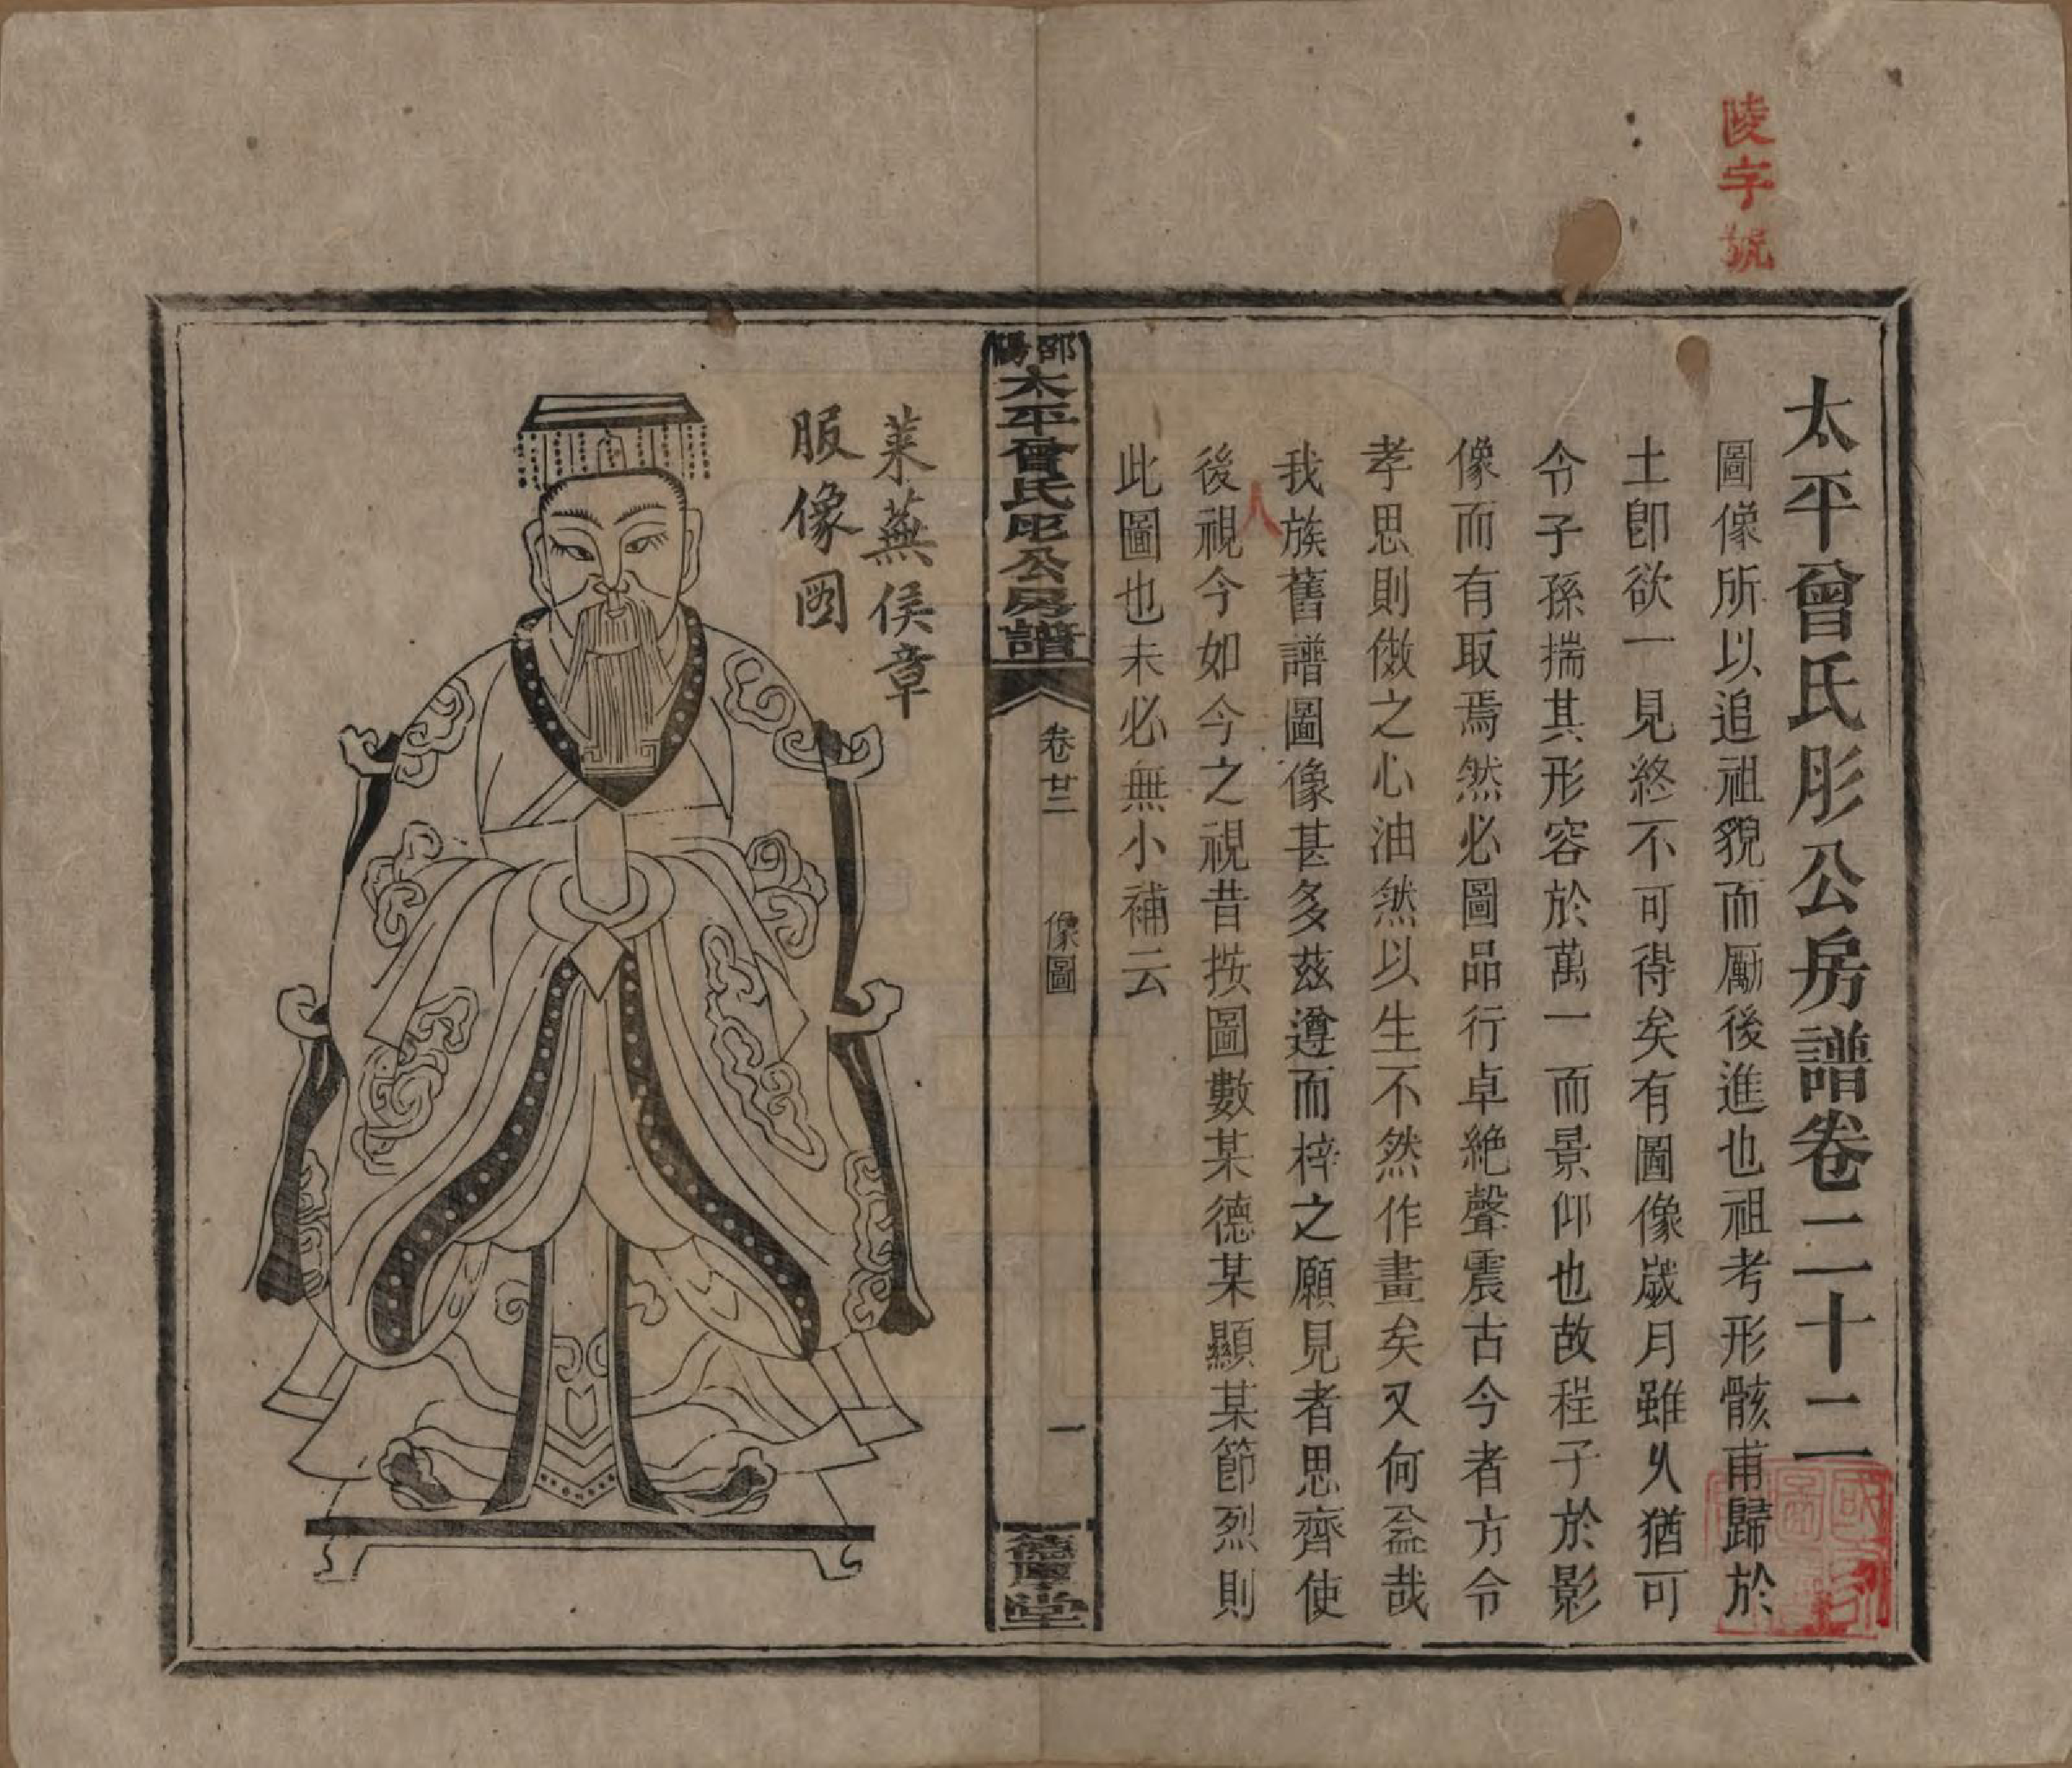 陵字號
太平曾氏肜公房譜卷二十二
圖像所以追祖貌而勵後進也祖考形骸甫歸於
土卽欲一見終不可得矣有圖像歲月雖乆猶可
令子孫揣其形容於萬一而景仰也故程子於影
像而有取焉然必圖品行卓絶聲震古今者方令
孝思則傚之心油然以生不然作畫矣又何益哉
我族舊譜圖像甚多茲遵而梓之願見者思齊使
後人視今如今之視昔按圖數某德某顯某節烈則
此圖也未必無小補云
邵陽太平曾氏肜公房譜
卷廿二
像圖
一
德厚堂
萊蕪侯章
服像图